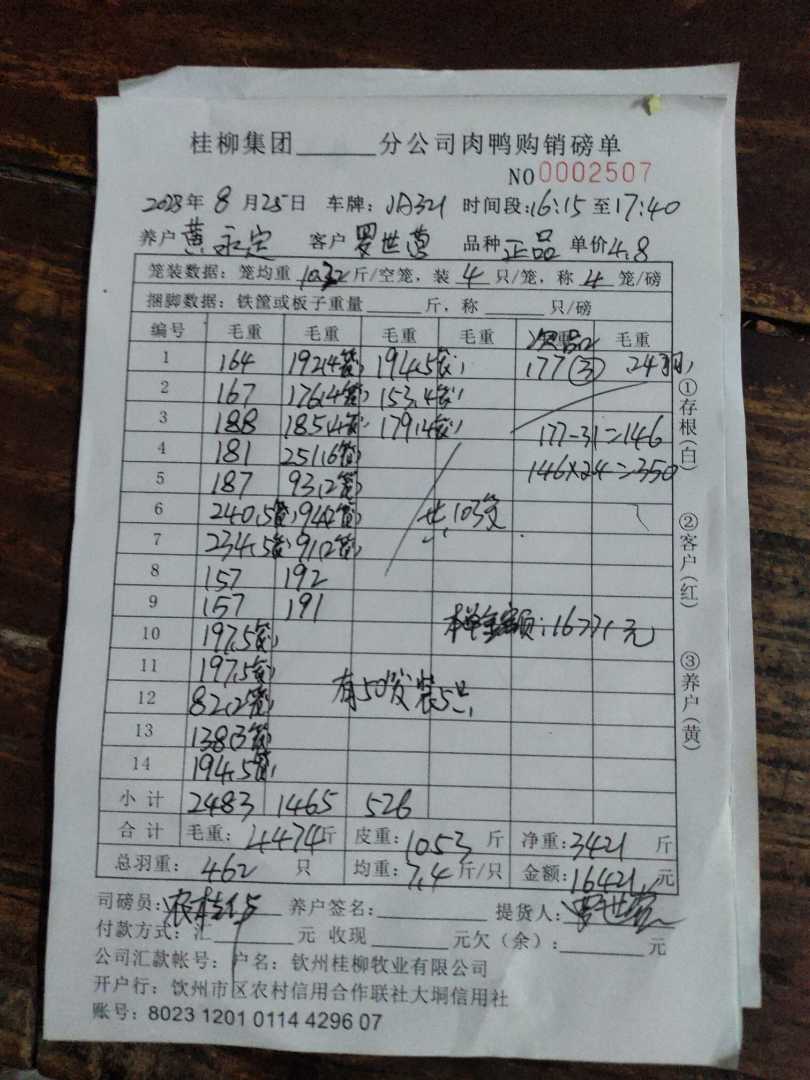 桂柳集团______分公司肉鸭购销磅单
NO 0002507
2023年 8 月 25日 车牌: 时间段:16:15 至 17:40
养户 黄永定 客户 罗世 品种 正品 单价 4.8
笼装数据: 笼均重 斤/空笼, 装 4 只/笼, 称 4 笼/磅
捆脚数据: 铁筐或板子重量______斤, 称______只/磅
编号 毛重 毛重 毛重 毛重 毛重
1 164 192(4笼) 194.5笼) 177(3) 24羽
2 167 176(4笼) 153.4笼)
3 188 185(4笼) 179(4笼) 177-31=146
4 181 251(6笼) 146×24=350
5 187 93(2笼)
6 240.5笼) 94(2笼) 共103笼
7 234.5笼) 91(2笼)
8 157 192
9 157 191 本单金额:16771元
10 197.5笼)
11 197.5笼)
12 82(2笼) 有50笼装5只
13 138(3笼)
14 194.5笼)
小计 2483 1465 526
合计 毛重: 4474斤 皮重: 1053 斤 净重: 3421 斤
总羽重: 462 只 均重: 7.4 斤/只 金额: 16421 元
司磅员: 养户签名: 提货人: 罗世
付款方式: 汇______元 收现______元欠(余):______元
公司汇款帐号: 户名: 钦州桂柳牧业有限公司
开户行: 钦州市区农村信用合作联社大垌信用社
账号: 8023 1201 0114 4296 07
①存根(白)
②客户(红)
③养户(黄)